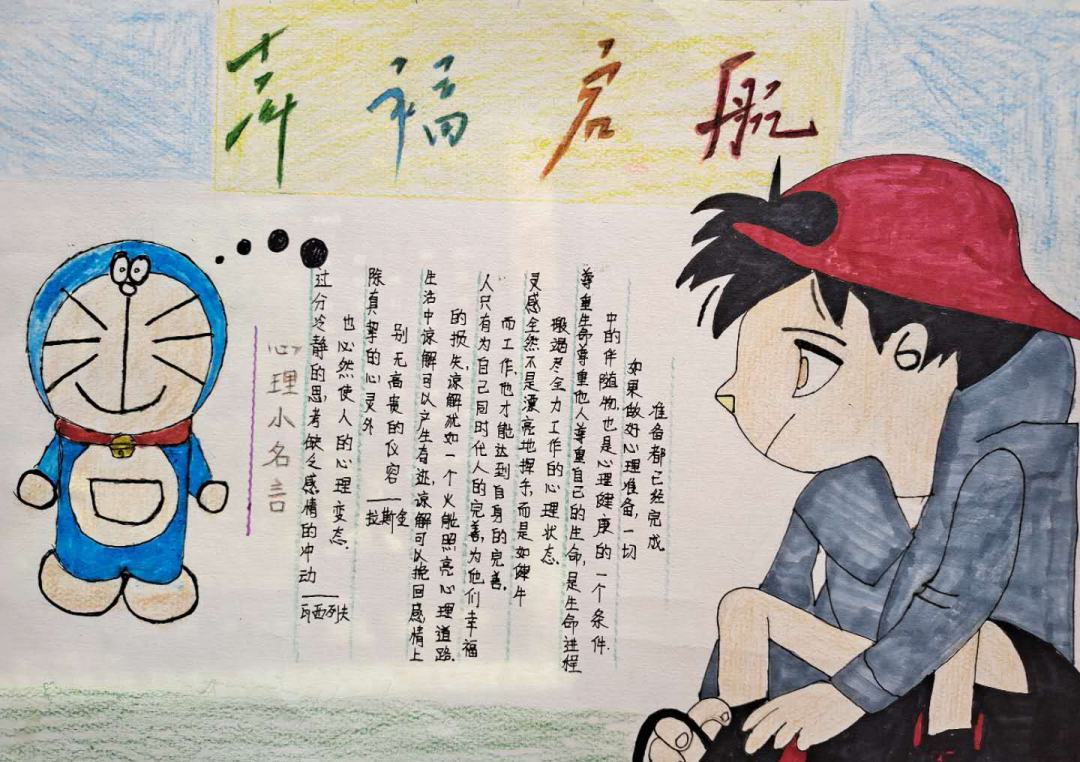 幸福启航
心理小名言
过分冷静的思考缺乏感情的冲动
也必然使人的心理变态.
——瓦西列夫
除真挚的心灵外
别无高贵的仪容
——拉斯金
生活中谅解可以产生奇迹,谅解可以挽回感情上
的损失,谅解犹如一个火炬照亮心理道路.
人只有为自己同时代人的完善,为他们幸福
而工作,他才能达到自身的完善.
灵感全然不是漂亮地挥手,而是如健牛
般竭尽全力工作的心理状态.
尊重生命尊重他人尊重自己的生命,是生命进程
中的伴随物,也是心理健康的一个条件.
如果做好心理准备,一切
准备都已经完成.